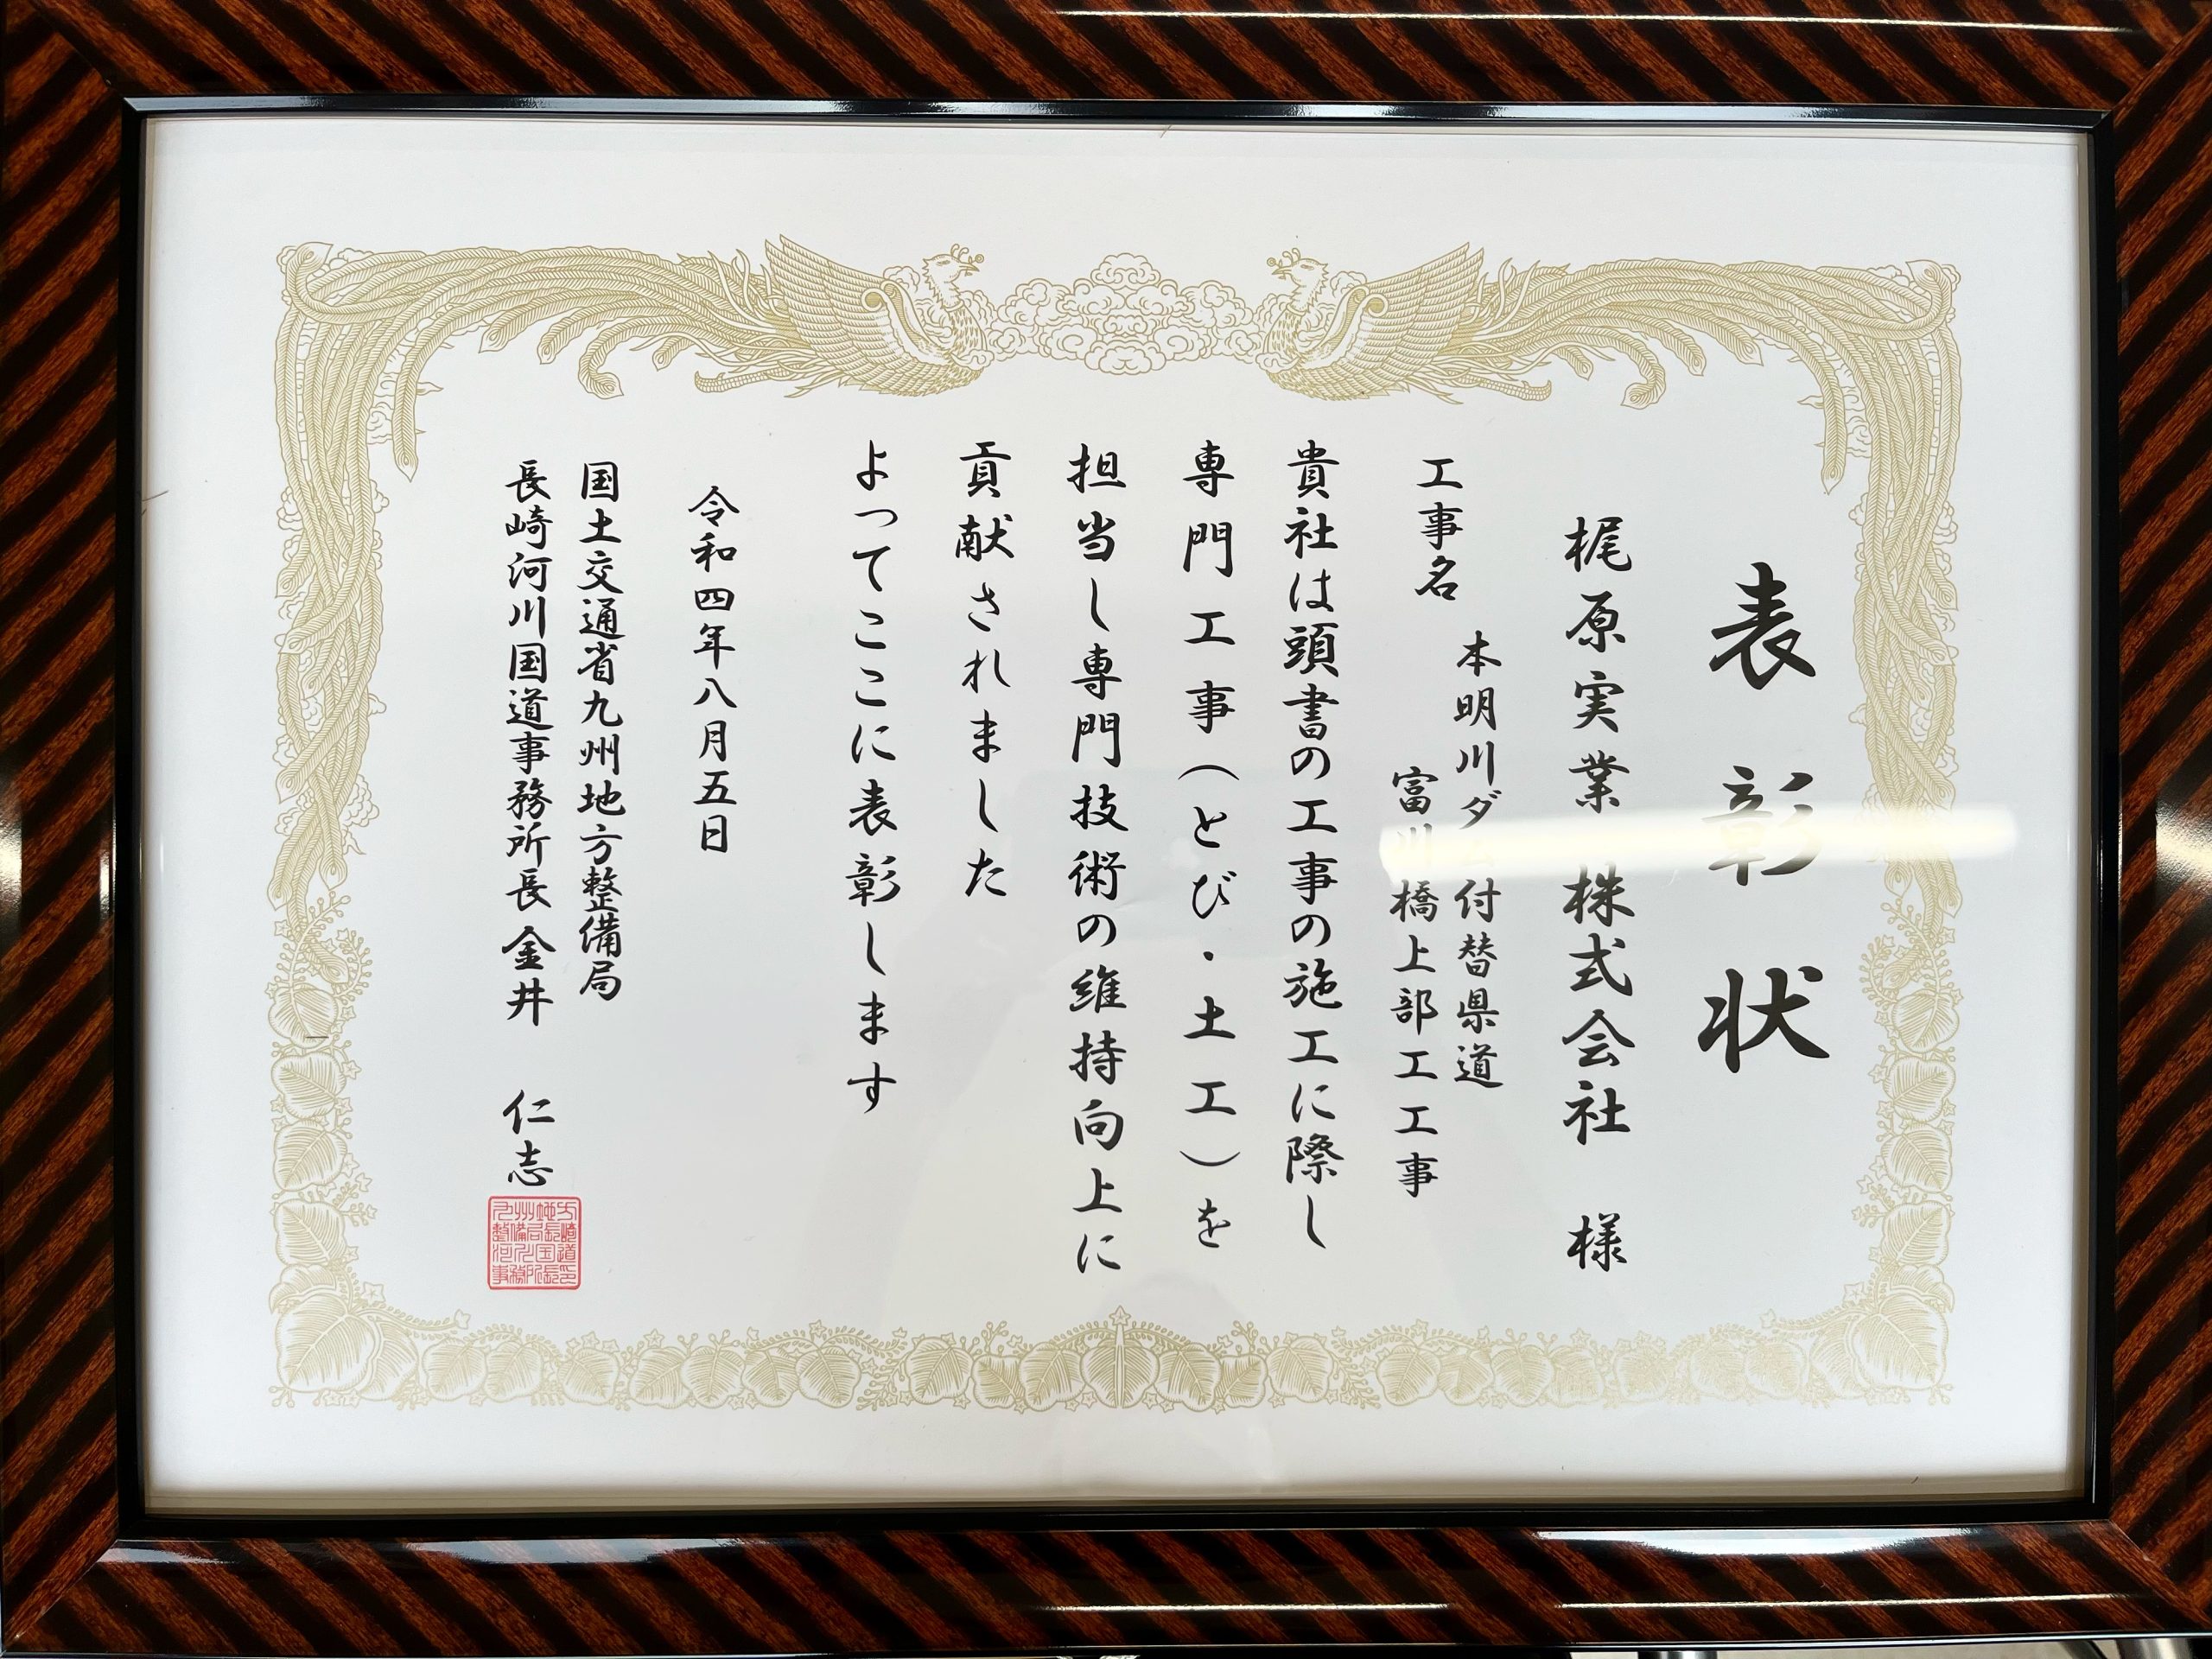 表彰状
梶原実業株式会社 様
工事名
本明川ダム付替県道
富川橋上部工工事
貴社は頭書の工事の施工に際し
専門工事(とび・土工)を
担当し専門技術の維持向上に
貢献されました
よってここに表彰します
令和四年八月五日
国土交通省九州地方整備局
長崎河川国道事務所長 金井 仁志